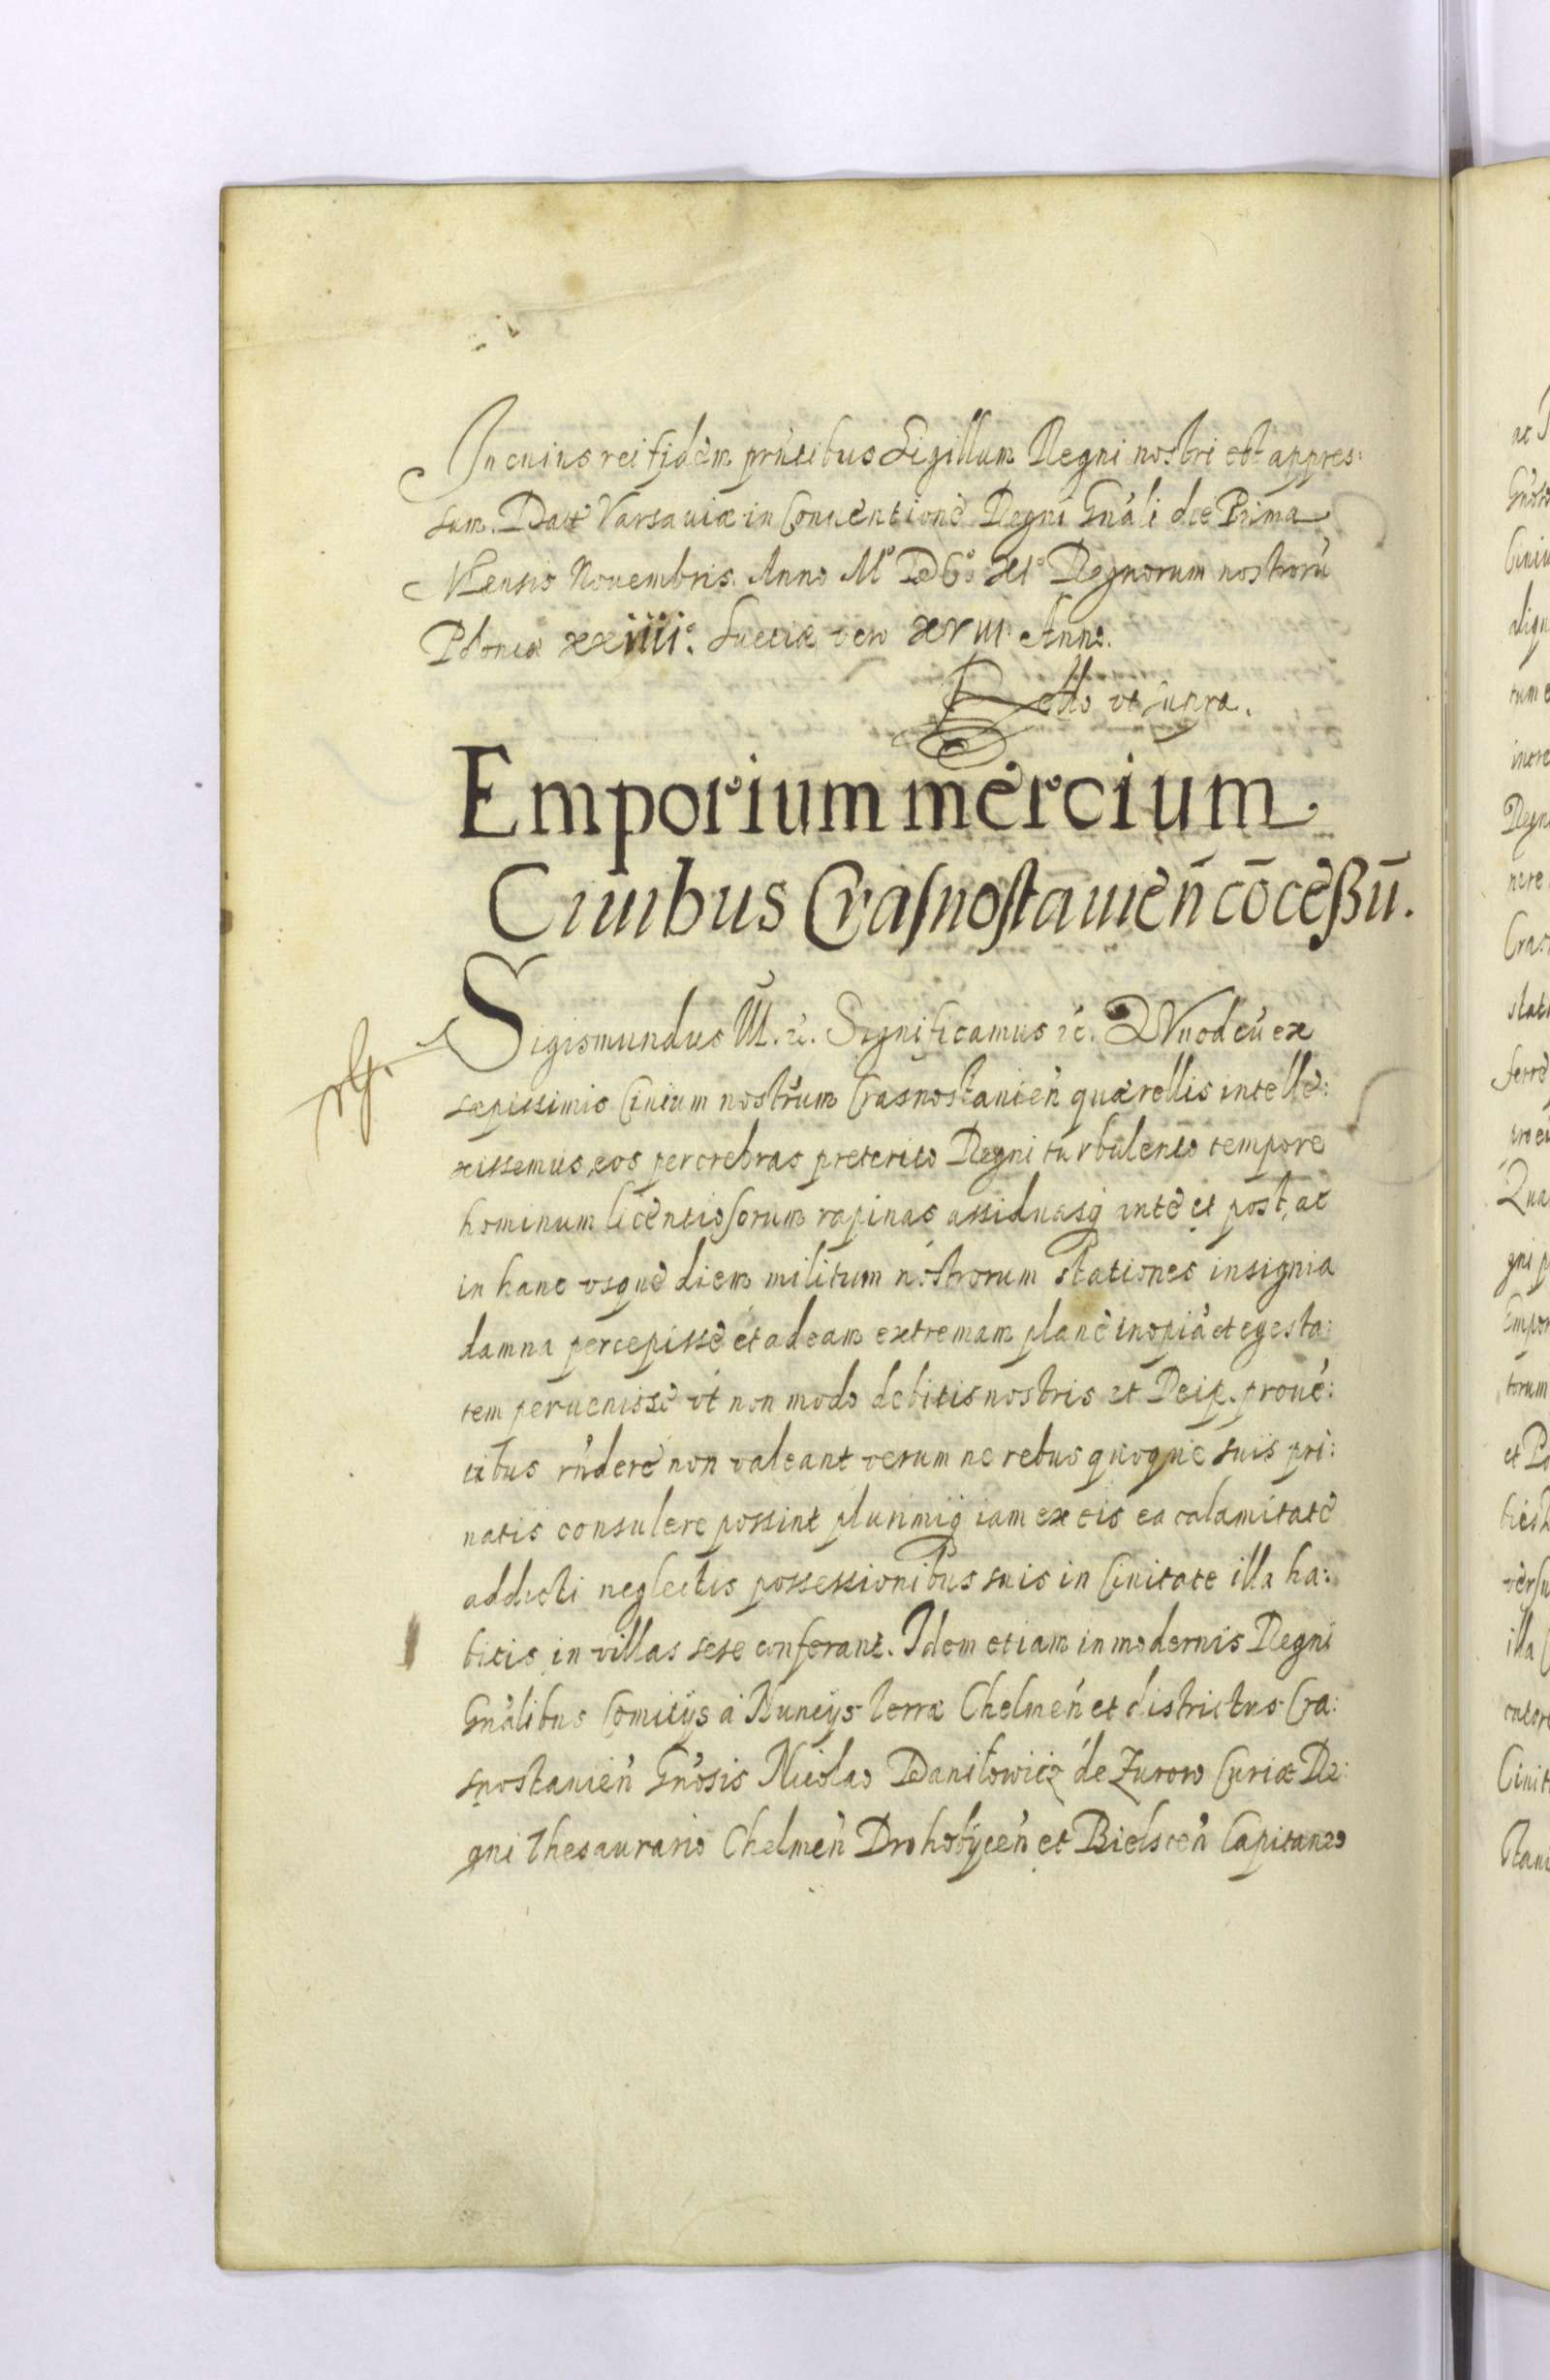 In cuius rei fidem pr̃ntibus Sigillum Regni nostri est appres:
sum. Dat̃ Varsauiæ in Conuentione Regni Gn̄ali die Prima
Mensis Nouembris. Anno M.° DC.° XI.° Regnorum nostrorū
Poloniæ xxiiii.° Sueciæ vero xviii Anno.
R̃elãtio vt supra.
Emporium mercium
Ciuibus Crasnostauien̄ cōceßū.
Sigismundus III. &c. Significamus &c. Quod cū ex
sæpissimis Ciuium nostrūm Crasnostauien̄ quærellis intelle:
xissemus, eos per crebras preterito Regni turbulento tempore
hominum licentiosorum rapinas assiduasq̢ ante et post, ac
in hanc vsque diem militum nostrorum stationes insignia
damna percepisse et ad eam extremam plane inopiā et egesta:
tem peruenisse vt non modo debitis nostris et Reip. prouē:
tibus r̄ndere non valeant verum ne rebus quoque suis pri:
uatis consulere possint plurimiq̢ iam ex eis ea calamitate
addicti neglectis possessionibus suis in Ciuitate illa ha:
bitis in villas sese conferant. Idem etiam in modernis Regni
Gn̄alibus Comitijs à Nuncijs terræ Chelmen̄ et districtus Cra:
snostauien̄ Gn̄osis Nicolao Daniłowicz de Zurow Curiæ Re:
gni Thesaurario Chelmen̄ Drohobÿcen̄ et Bielscen̄ Capitaneo